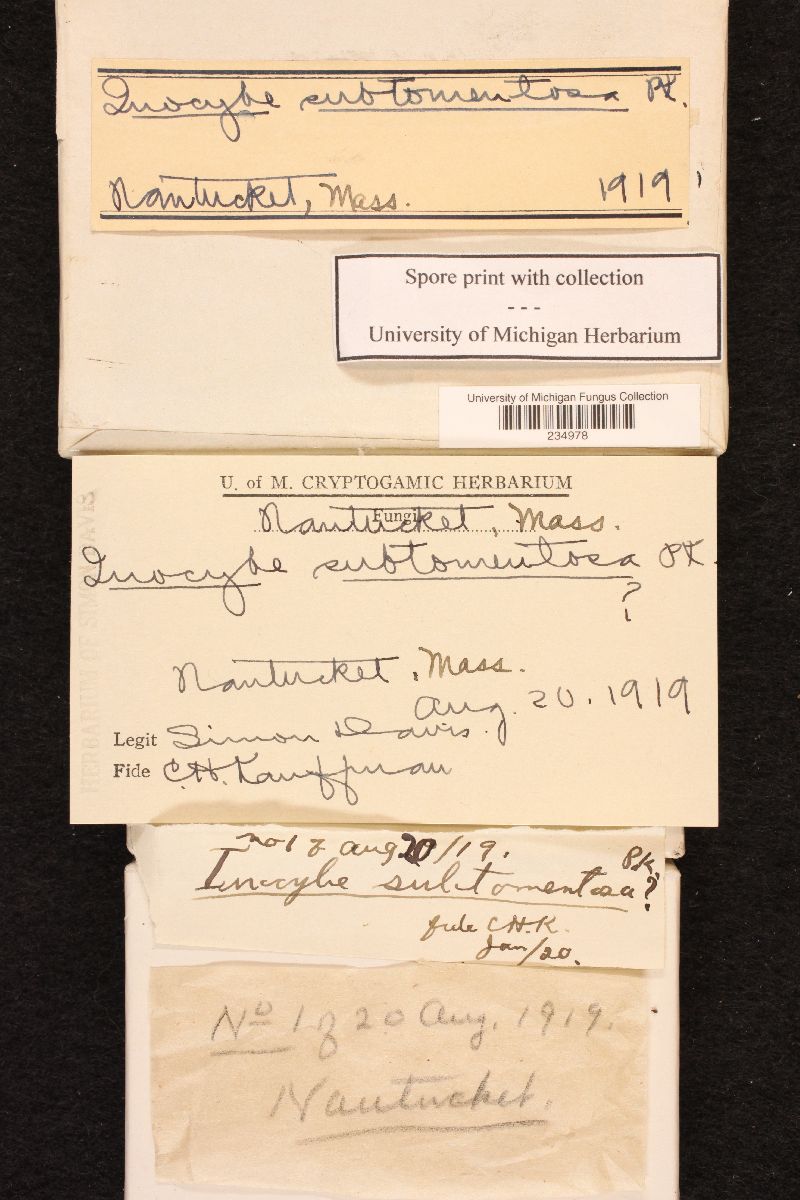 Inocybe subtomentosa Pk.
Nantucket, Mass. 1919,
Spore print with collection
- - -
University of Michigan Herbarium
University of Michigan Fungus Collection
234978
HERBARIUM OF SIMON DAVIS
U. of M. CRYPTOGAMIC HERBARIUM
Fungi
Nantucket, Mass.
Inocybe subtomentosa Pk.
?
Nantucket, Mass.
Aug. 20, 1919
Legit Simon Davis.
Fide C.H. Kauffman
no 1 of aug 20/19.
Inocybe subtomentosa Pk. ?
fide C.H.K.
Jan/20.
No 1 of 20 Aug. 1919.
Nantucket.